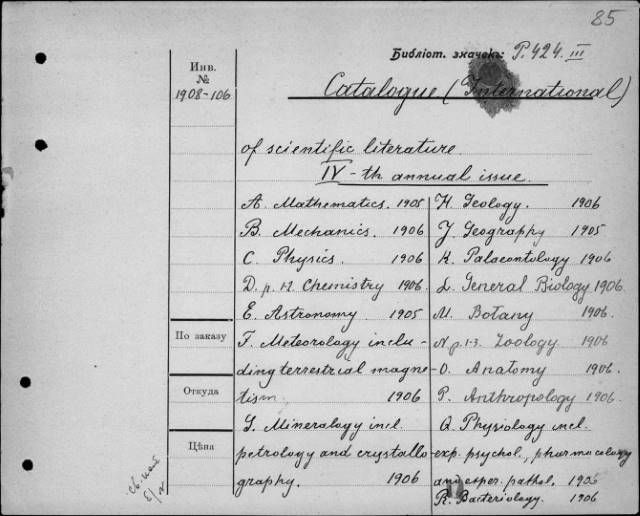 85
Библіот. значекъ: P.424.III
Инв.
№
1908-106
Catalogue (International)
of scientific literature.
IV-th annual issue.
A. Mathematics. 1905
B. Mechanics. 1906
C. Physics. 1906
D. p. 1-2. Chemistry 1906.
E. Astronomy 1905
F. Meteorology inclu-
ding terrestrial magne-
tism 1906
G. Mineralogy incl.
petrology and crystallo-
graphy. 1906
H. Geology. 1906
J. Geography 1905
K. Palaeontology 1906
L. General Biology 1906.
M. Botany 1906.
N p. 1-3. Zoology 1906
O. Anatomy 1906
P. Anthropology 1906.
Q. Physiology incl.
exp. psychol., pharmacology
and exper. pathol. 1906
R. Bacteriology. 1906
По заказу
Откуда
Цѣна